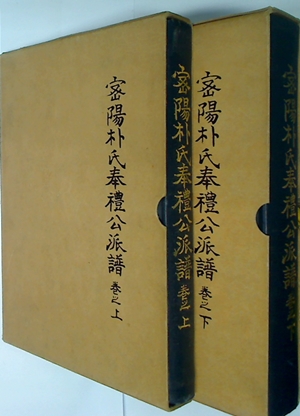 密陽朴氏奉禮公派譜 卷之上
密陽朴氏奉禮公派譜 卷之上
密陽朴氏奉禮公派譜 卷之下
密陽朴氏奉禮公派譜 卷之下